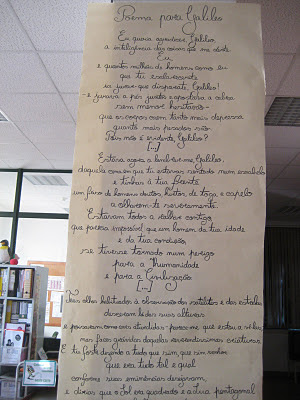 Poema para Galileo
Eu queria agradecer-te, Galileo,
a inteligência das coisas que me deste.
Eu,
e quantos milhões de homens como eu
a quem tu esclareceste
ia jurar - que disparate, Galileo!
- e jurava a pés juntos e apostava a cabeça
sem a menor hesitação -
que os corpos caem tanto mais depressa
quanto mais pesados são.
Pois não é evidente, Galileo?
[...]
Estava agora a lembrar-me, Galileo,
daquela cena em que tu estavas sentado num escabelo
e tinhas à tua frente
um friso de homens doutos, hirtos, de toga e capelo
a olharem-te severamente.
Estavam todos a ralhar contigo,
que parecia impossível que um homem da tua idade
e da tua condição,
se tivesse tornado num perigo
para a Humanidade
e para a Civilização.
[...]
Teus olhos habituados à observação dos satélites e das estrelas
desceram lá das suas alturas
e poisaram, como aves aturdidas - parece-me que estou a vê-las -
nas faces grávidas daquelas reverendíssimas criaturas.
E tu foste dizendo a tudo que sim, que sim senhor,
que era tudo tal qual
conforme suas eminências desejavam,
e dirias que o Sol era quadrado e a Lua pentagonal